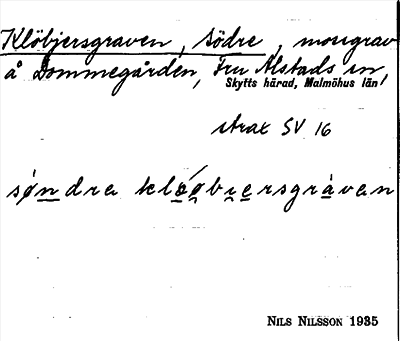 Klöbjersgraven, södre, mosegrav
å Dommegården, Fru Alstads sn,
Skytts härad, Malmöhus län,
strax SV 16
søndra kløøbjersgraven
NILS NILSSON 1935